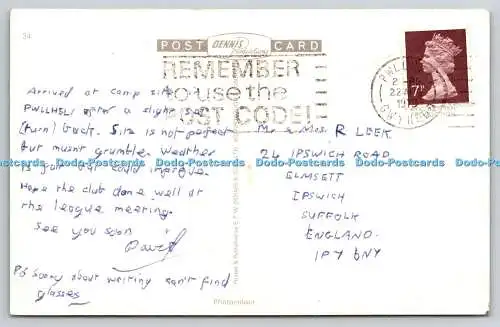 34
POST DENNIS Productions CARD
REMEMBER
to use the
POST CODE!
7P
Arrived at camp site
PWLLHELI after a slight set
(turn) back. Site is not perfect
but musnt grumble. Weather
is fair but could improve.
Hope the club done well at
the league meeting.
See you soon
David
PS Sorry about writing can't find
glasses
Mr & Mrs R LEEK
24 IPSWICH ROAD
ELMSETT
IPSWICH
SUFFOLK
ENGLAND.
IP7 6NY
Dodo-Postcards Dodo-Postcards Dodo-Postcards Dodo-Postcards Dodo-Postcards Dodo-Postcards
Photocolour